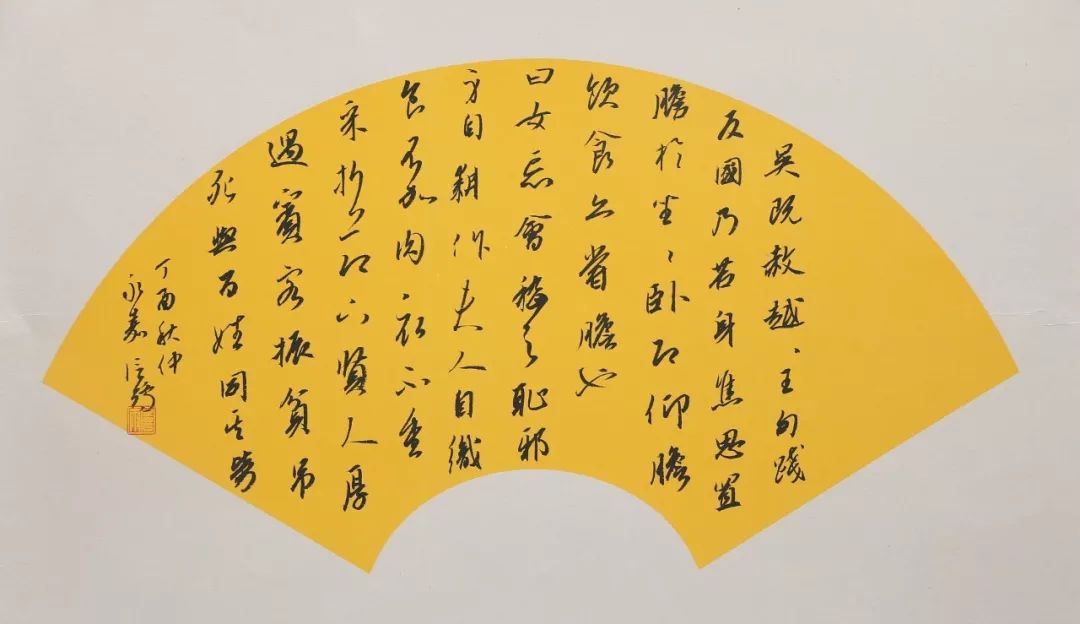 吳既赦越、王句踐
反國乃苦身焦思置
膽於坐、臥即仰膽
飲食亦嘗膽也
曰女忘會稽之恥邪
身自耕作夫人自織
食不加肉衣不重
采折節下賢人厚
遇賓客振貧吊
死與百姓同其勞
丁酉秋仲
永嘉